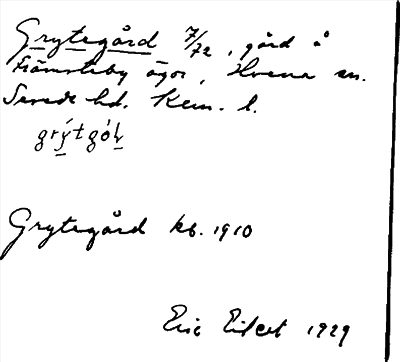 Grytegård 7/72, gård å
Främsteby ägor, Hvena sn.
Sevede hd. Kem. l.
grýtgóḷ
Grytegård kb. 1910
Eric Eilert 1929